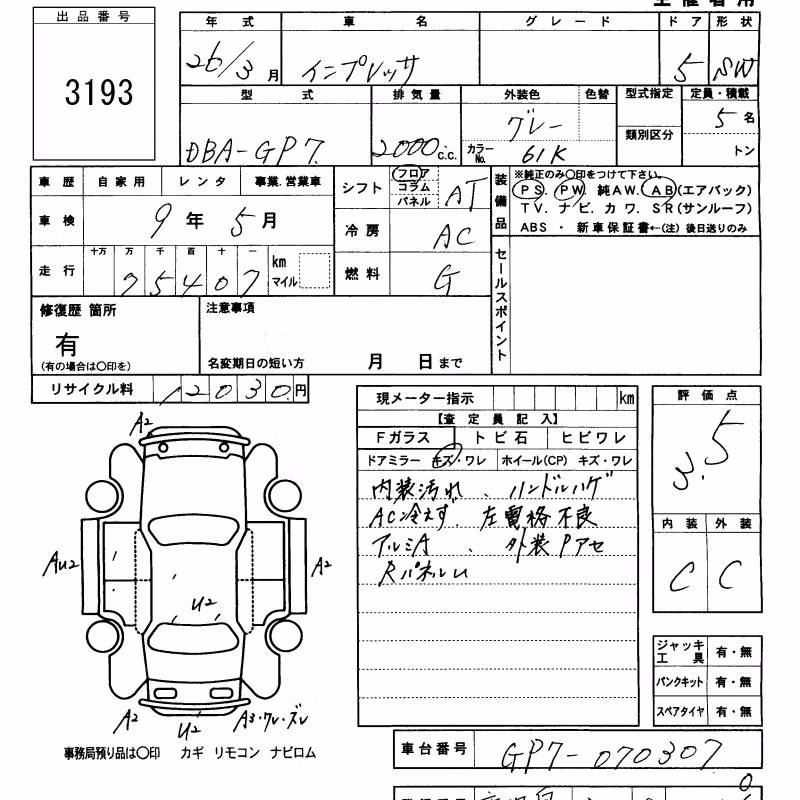 主催者用
出品番号
3193
年式 車名 グレード ドア 形状
26/3月 インプレッサ 5 SW
型式 排気量 外装色 色替 型式指定 定員・積載
DBA-GP7 2000c.c. グレー 5名
カラーNo. 61K 類別区分 トン
車歴 自家用 レンタ 事業.営業車
シフト フロア コラム パネル AT
装備品
※純正のみ○印をつけて下さい。
PS. PW 純AW. AB(エアバック)
TV. ナビ. カワ. SR(サンルーフ)
ABS ・ 新車保証書←(注) 後日送りのみ
車検 9年5月
冷房 AC
走行 十万 万 千 百 十 一 km マイル
75407
燃料 G
セールスポイント
修復歴 箇所
有
(有の場合は○印を)
注意事項
名変期日の短い方 月 日まで
リサイクル料 12030円
現メーター指示 km
【査定員記入】
Fガラス トビ石 ヒビワレ
ドアミラー キズ・ワレ ホイール(CP) キズ・ワレ
内装汚れ、ハンドルハゲ
AC冷えず. 左電格不良
アルミA、外装Pアセ
Rパネルu
評価点
3.5
内装 外装
C C
A2
AU2
A2
U2
A2
U2
A3・ワレ・ズレ
ジャッキ工具 有・無
パンクキット 有・無
スペアタイヤ 有・無
事務局預り品は○印 カギ リモコン ナビロム
車台番号 GP7-070307